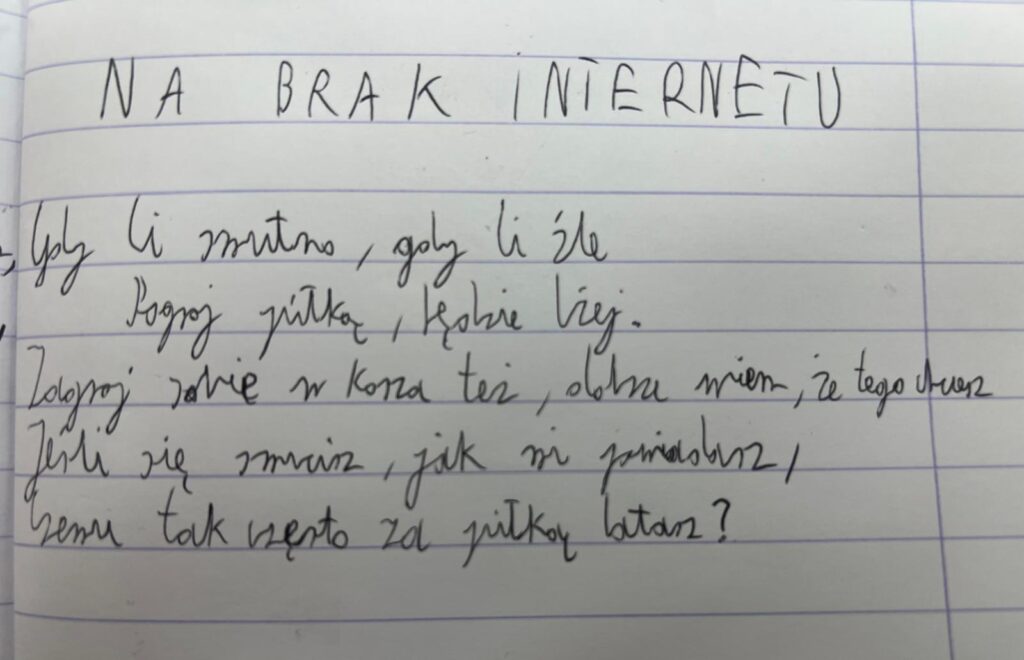 NA BRAK INTERNETU
Gdy Ci smutno, gdy Ci źle
Pograj piłką, będzie lżej.
Zagraj sobie w kosza też, dobrze wiem, że tego chcesz
Jeśli się smucisz, jak mi powiadasz,
Czemu tak często za piłką latasz?